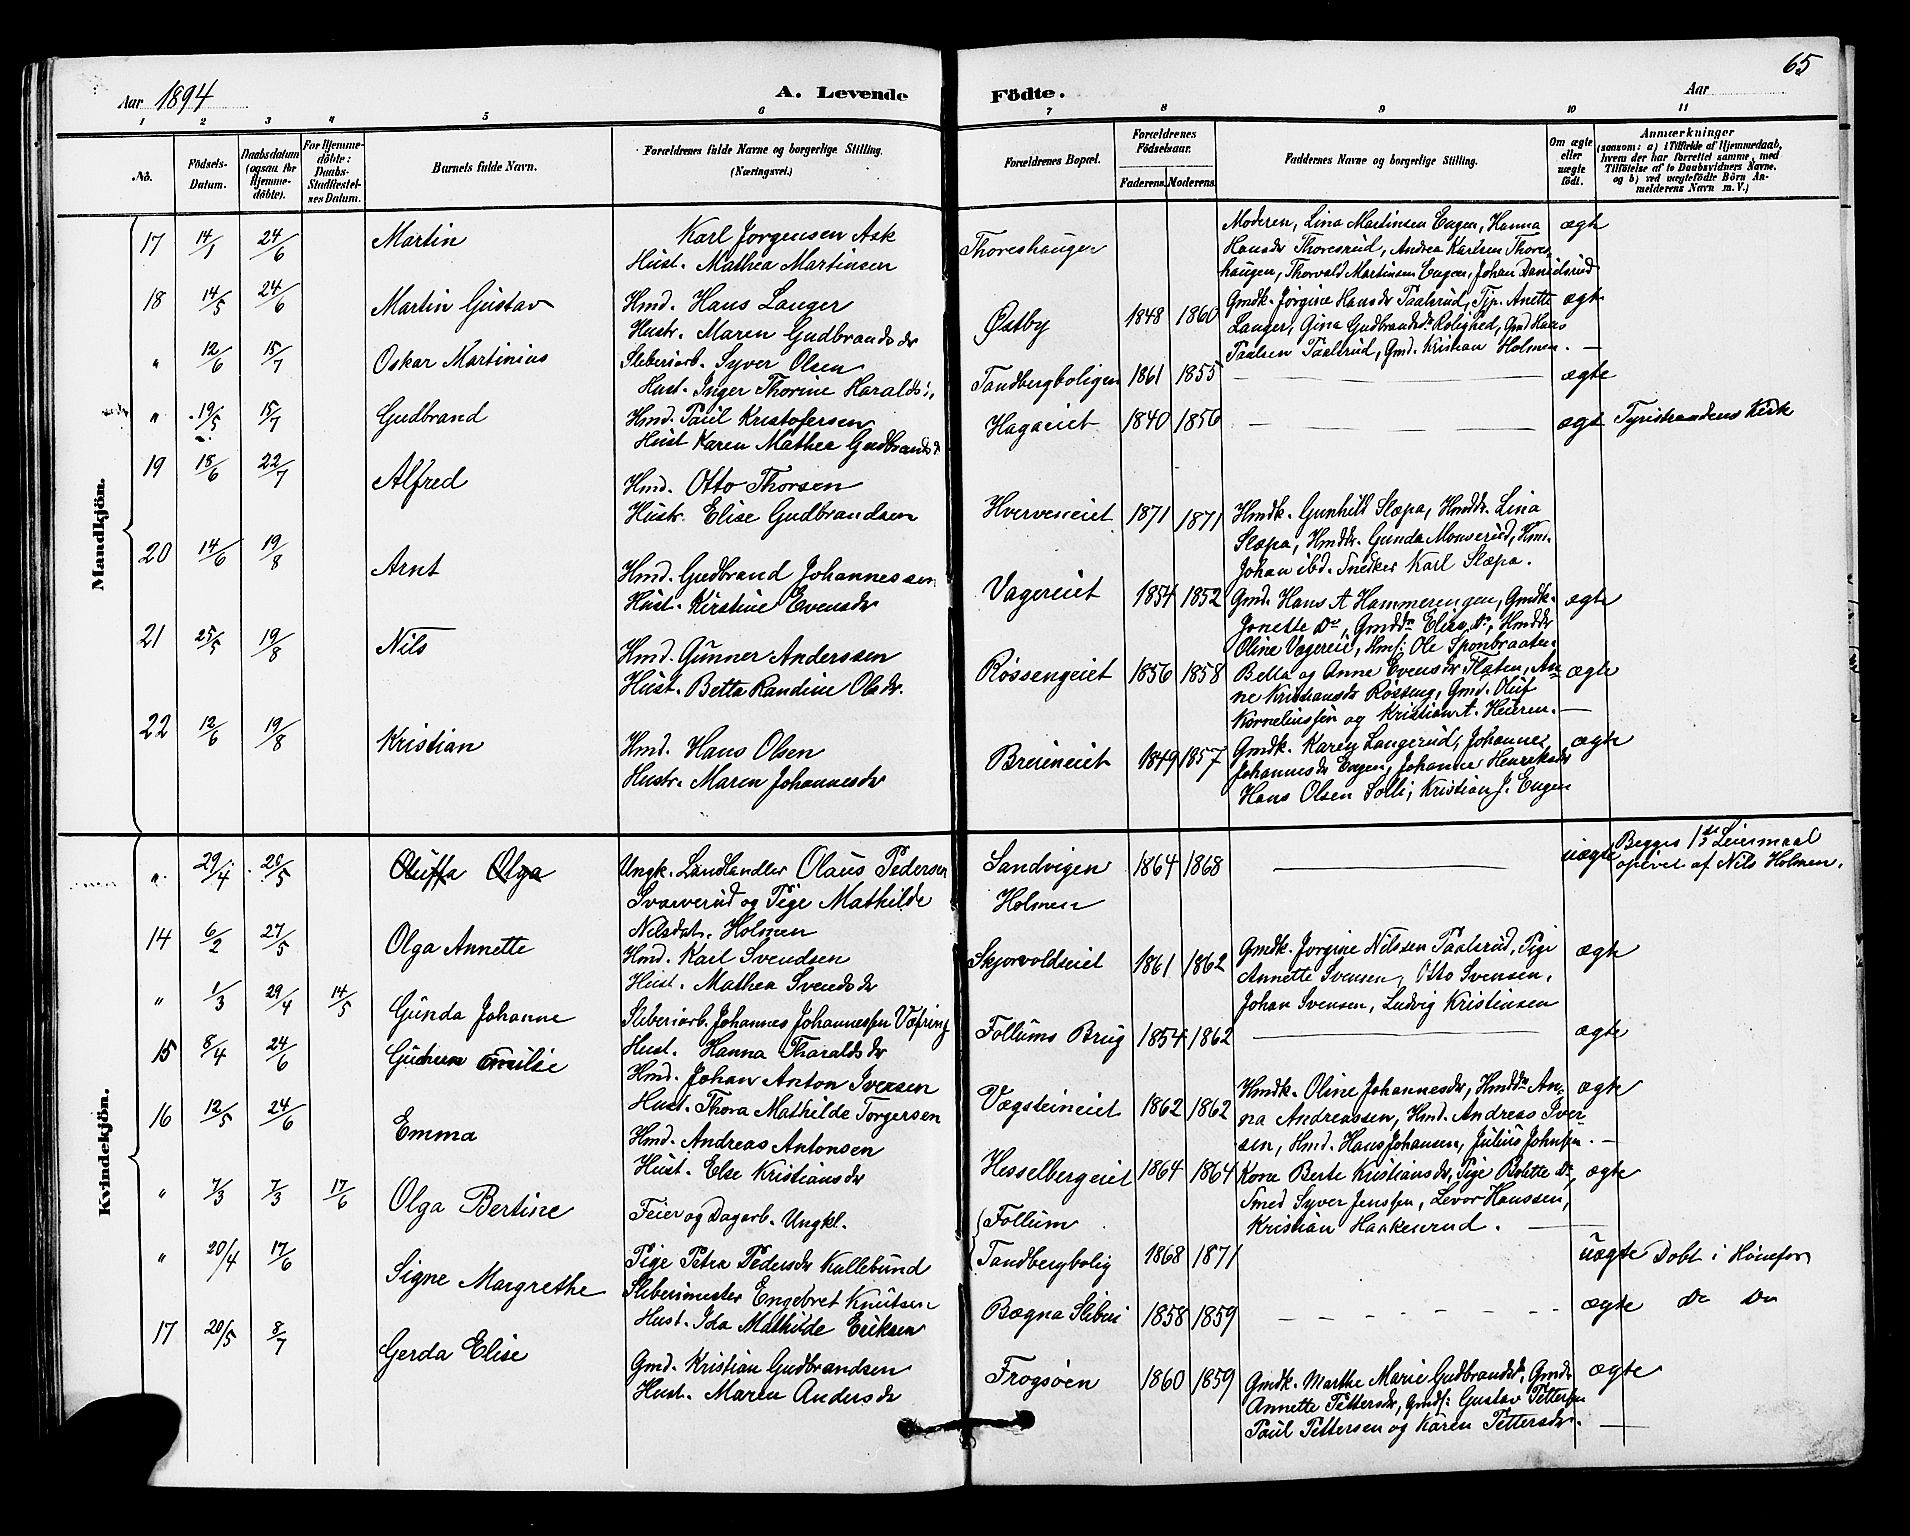 65
Aar 1894
A. Levende
Födte.
Aar
1 2 3 4 5 6 7 8 9 10 11
No.
Födsels-Datum.
Daabsdatum (ogsaa for Hjemme-döbte).
For Hjemme-döbte: Daabs-Stadfæstel-ses Datum.
Barnets fulde Navn.
Forældrenes fulde Navne og borgerlige Stilling. (Næringsvei.)
Forældrenes Bopæl.
Forældrenes Födselsaar.
Faderens. Moderens.
Faddernes Navne og borgerlige Stilling.
Om ægte eller uægte födt.
Anmærkninger
(saasom: a) i Tilfælde af Hjemmedaab,
hvem der har forrettet samme, med
Tilföielse af to Daabsvidners Navne,
og b) ved uægtefödte Börn An-
melderens Navn m. V.)
Mandkjön.
17 14/1 24/6 Martin
Karl Jorgensen Ask
Hust. Mathea Martinsen
Thoreshaugen
Moderen, Lina Martinsen Engen, Hanna
Hansdr Thoresrud, Andrea Karlsen Thores
haugen, Thorvald Martinsen Engen, Johan Danielsrud
ægte
18 14/5 24/6 Martin Gustav
Hmd. Hans Langer
Hustr. Maren Gudbrandsdr
Østby 1848 1860
Gmdk. Jörgine Hansdr Paalsrud, Pip. Anette
Langer, Gina Gudbrandsdr Rolighed, Gmd Hans
Paalsen Paalsrud, Gmd. Kristian Holmen. —
ægte
" 12/6 15/7 Oskar Martinius
Sliberiarb. Syver Olsen
Hust. Inger Thorine Haralds:,
Tandbergboligen 1861 1855 — ægte
" 19/5 15/7 Gudbrand
Hmd. Paul Kristofersen
Hust Karen Mathea Gudbrandsdr
Hagaeiet 1840 1856 — ægte Tyristrandens Kirke
19 18/6 22/7 Alfred
Hmd. Otto Thorsen
Hustr. Elise Gudbrandsen
Hverveneiet 1871 1871
Hmdk. Gunhild Slæpa, Hmddr. Lina
Slæpa, Hmddr. Gunda Monserud, Hmd.
Johan ibd. Snedker Karl Slæpa.
20 14/6 19/8 Arnt
Hmd. Gudbrand Johannessen
Hust. Kirstine Evensdr
Vagereiet 1854 1852
Gmd. Hans A Hammerengen, Gmdk.
Jonette Do, Gmddr Elise Do, Hmddr
Oline Vagereie, Hmf: Ole Sponbraaten
ægte
21 25/5 19/8 Nils
Hmd. Gunner Anderssen
Hust. Betta Randine Olsdr.
Røssengeiet 1856 1858
Bella og Anne Evensdr Flaten, An-
ne Kristiansdr Røsseng, Gmd. Oluf
Korneliussen og Kristian A. Heieren. —
ægte
22 12/6 19/8 Kristian
Hmd. Hans Olsen
Hustr. Maren Johannesdr
Breieneiet 1849 1857
Gmdk. Karen Langerud, Johanne
Johannesdr Engen, Johanne Henriksdr
Hans Olsen Solli, Kristian J. Engen
ægte
Kvindekjön.
" 29/4 20/5 Oluffa Olga
Ungk. Landhandler Olaus Pedersen
Svarverud og Pige Mathilde
Nilsdat. Holmen
Sandvigen
Holmen
1864 1868 — uægte
Begges 1ste Leiermaal
opgivet af Nils Holmen.
14 6/2 27/5 Olga Annette
Hmd. Karl Svendsen
Hust. Mathea Svendsdr
Skjorvoldseiet 1861 1862
Gmdk. Jorgine Nilssen Paalsrud, Pige
Annette Svensen, Otto Svensen,
Johan Svensen, Ludvig Kristiansen
ægte
" 1/3 29/4 14/5 Gunda Johanne
Sliberiarb. Johannes Johannessen Væfring
Hust. Hanna Tharaldsdr
Follums Brug 1854 1862 — ægte
15 8/4 24/6 Gudrun Emilie
Hmd. Johan Anton Iversen
Hust. Thora Mathilde Torgersen
Vægsteineiet 1862 1862
Hmdk. Oline Johannesdr, Hmddr An-
na Andreassen, Hmd. Andreas Iver
sen, Hmd. Hans Johansen, Julius Johnsen. —
ægte
16 12/5 24/6 Emma
Hmd. Andreas Antonsen
Hust. Else Kristiansdr
Hesselbergeiet 1864 1864
Kone Berte Kristiansdr, Pige Bolette Do,
Smed Syver Jenssen, Levor Hanssen,
Kristian Haakenrud. —
ægte
" 7/3 7/3 17/6 Olga Bertine
Feier og Dagarb. Ungkl.
Pige Petra Pedersdr Kullebund
Follum
Tandbergbolig 1868 1871 uægte Döbt i Hönefos
" 20/4 17/6 Signe Margrethe
Sliberimester Engebret Knutsen
Hust. Ida Mathilde Eriksen
Bægna Sliberi 1858 1859 — ægte Do Do
17 20/5 8/7 Gerda Elise
Gmd. Kristian Gudbrandsen
Hust. Maren Andersdr
Frogsöen 1860 1859
Gmdk. Marthe Marie Gudbrandsdr, Gmdk
Annette Pettersdr, Gmdf: Gustav Pettersen
Paul Pettersen og Karen Pettersdr. —
ægte